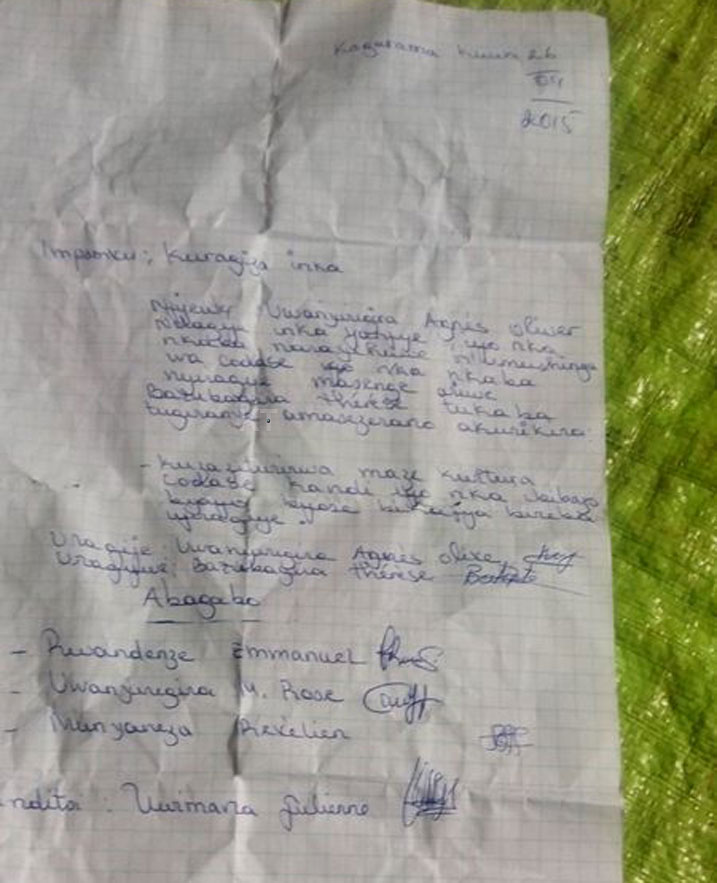 Kagarama Kuwa 26
04
2015
Impamvu: Kuragiza inka
Njyewe Uwanyirigira Agnès oliver
Ndagije inka yanjye iyo nka
nkaba narayihawe n'umushinga
wa codase iyo nka nkaba
nyiragije masenge
Bazubagira thérèse tukaba
tugiranye amasezerano akurikira:
- kuzaziturirwa maze kwitura
codase kandi iyo nka ibibazo
byayo byose bikajya bireba
uyiragiye.
Uragije: Uwanyirigira Agnès olive
Uragijwe: Bazubagira thérèse
Abagabo
- Rwandenze Emmanuel
- Uwanyirigira M. Rose
- Munyaneza
nditsi: Uwimana Julienne